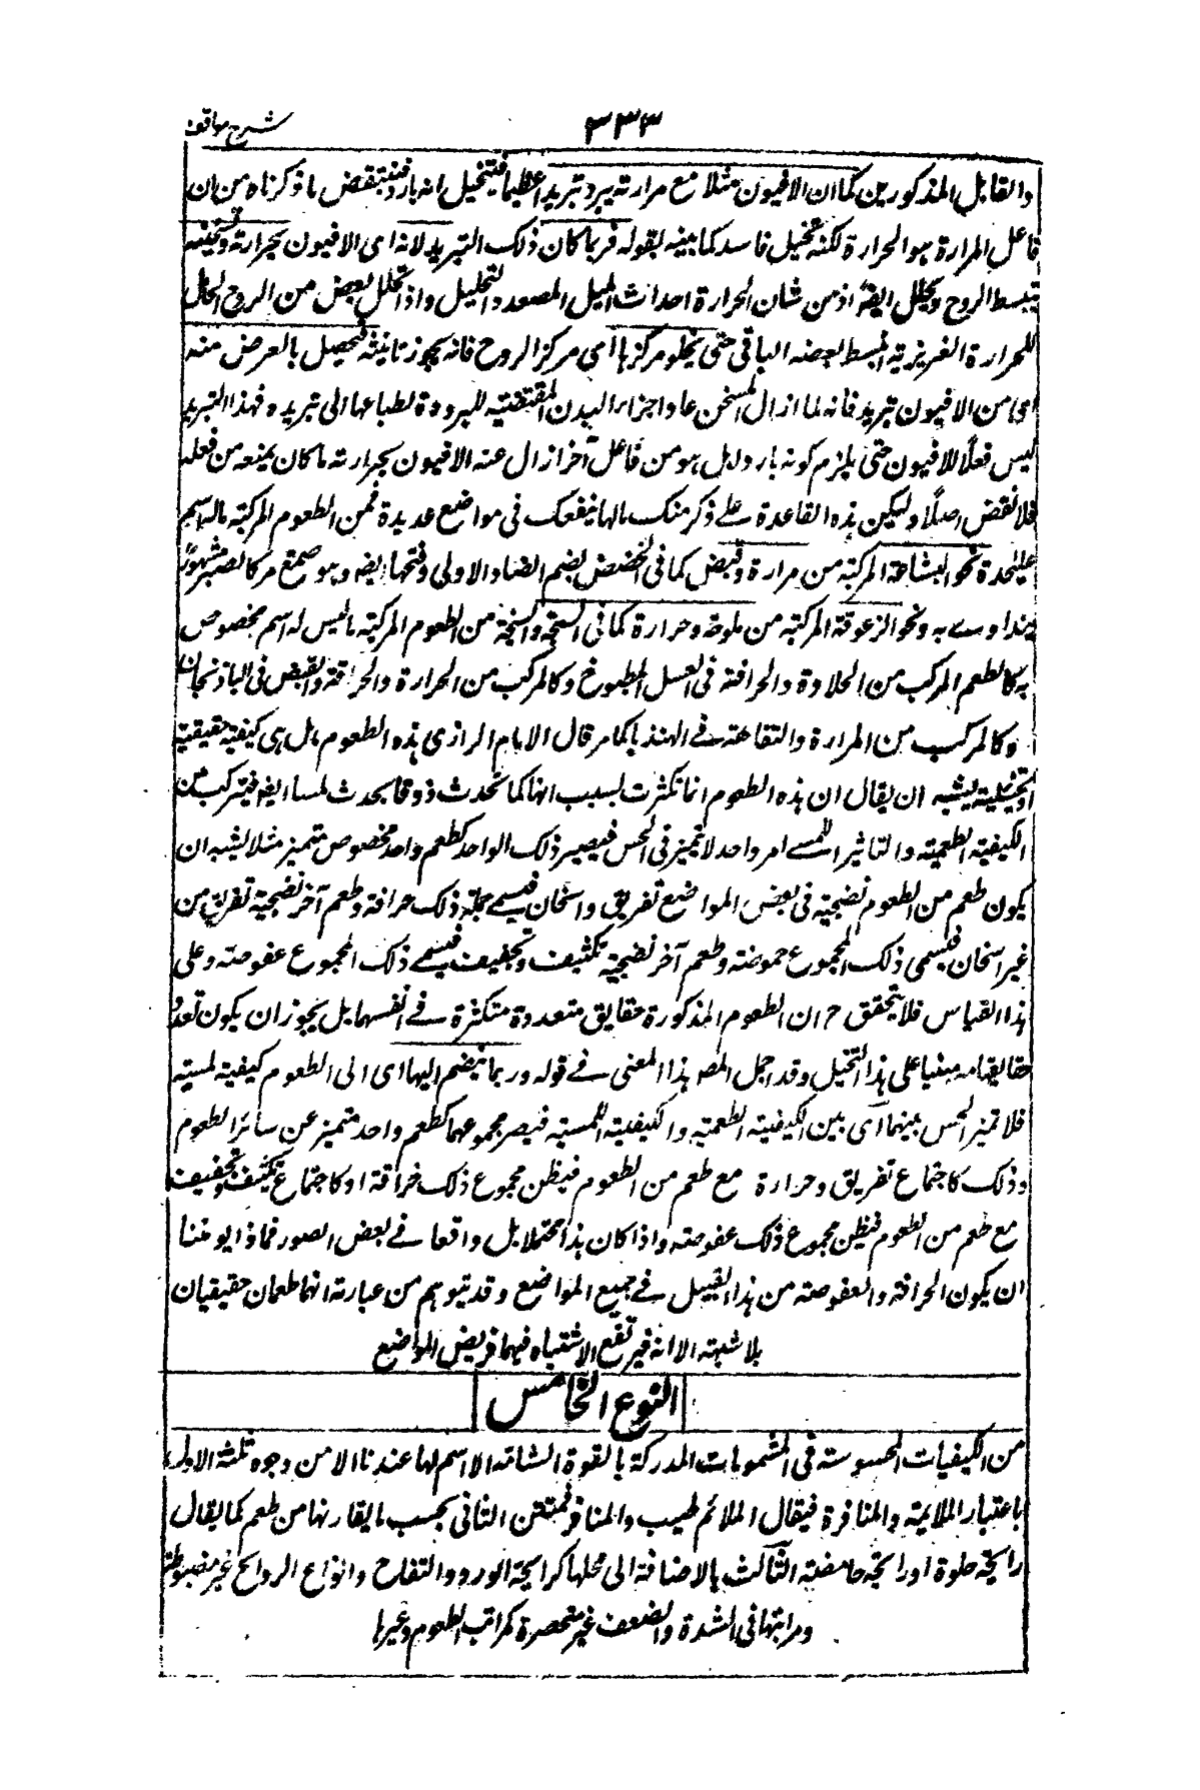 شرح مواقف
٣٣٣
والقابل المذكورين كما ان الافيون مثلا مع مرارته يبرد تبريدا عظيما فيتخيل انه بارد فينتقض ما ذكرناه من ان
فاعل المرارة هو الحرارة لكنه تخيل فاسد كما بينه بقوله فربما كان ذلك التبريد لانه اى الافيون بحرارته وتسخينه
يبسط الروح ويحلل ايضه اذ من شان الحرارة احداث الميل المصعد والتحليل واذا تحلل بعض من الروح الحامل
للحرارة الغريزية انبسط بعضه الباقى حتى يخلو مركزها اى مركز الروح فانه يجوز تانيثه فيحصل بالعرض منه
اى من الافيون تبريد فانه لما ازال المسخن عاد اجزاء البدن المقتضية للبرودة لطباعها الى تبريده فهذا التبريد
ليس فعلًا للافيون حتى يلزم كونه باردا بل هو من فاعل آخر ازال عنه الافيون بحرارته ما كان يمنعه من فعله
فلا نقض اصلًا وليكن هذه القاعدة على ذكر منك فانها ينفعك فى مواضع عديدة فمن الطعوم المركبة ماله اسم
عليحدة نحو البشاعة المركبة من مرارة وقبض كما فى الحضض بضم الضاد الاولى وفتحها ايضه وهو صمغ مر كالصبر مشهور
يتداوى به ونحو الزعوقة المركبة من ملوحة وحرارة كما فى السبخة والسبخة من الطعوم المركبة ما ليس له اسم مخصوص
به كالطعم المركب من الحلاوة والحرافة فى العسل المطبوخ وكالمركب من المرارة والحرافة والقبض فى الباذنجان
وكالمركب من المرارة والتفاهة فى الهندبا كما مر قال الامام الرازى هذه الطعوم هل هى كيفية حقيقية
او تخيلية يشبه ان يقال ان هذه الطعوم انما تكثرت بسبب انها كما تحدث ذوقا يحدث لمسا ايضه فيتركب من
الكيفية الطعمية والتاثير اللمسى امر واحد لا يتميز فى الحس فيصير ذلك الواحد كطعم واحد مخصوص متميز مثلا يشبه ان
يكون طعم من الطعوم نضجية فى بعض المواضع تفريق واسخان فيسمى جملة ذلك حرافة وطعم آخر نضجية تفريق من
غير اسخان فيسمى ذلك المجموع حموضة وطعم آخر نضجية تكثيف وتجفيف فيسمى ذلك المجموع عفوصة وعلى
هذا القياس فلا يتحقق ح ان الطعوم المذكورة حقايق متعددة متكثرة فى انفسها بل يجوز ان يكون تعدد
حقايقها مبنيا على هذا التخيل وقد اجمل المصه هذا المعنى فى قوله وربما ينضم اليها اى الى الطعوم كيفية لمسية
فلا تميز الحس بينهما اى بين الكيفية الطعمية والكيفية اللمسية فيصير مجموعهما كطعم واحد متميز عن سائر الطعوم
وذلك كاجتماع تفريق وحرارة مع طعم من الطعوم فيظن مجموع ذلك حرافة او كاجتماع تكثيف وتجفيف
مع طعم من الطعوم فيظن مجموع ذلك عفوصة واذا كان هذا محتملا بل واقعا فى بعض الصور فماذا يومننا
ان يكون الحرافة والعفوصة من هذا القبيل فى جميع المواضع وقد يتوهم من عبارته انهما طعمان حقيقيان
بلا شبهة الا انه فير تقع الاشتباه فيهما فى بعض المواضع
النوع الخامس
من الكيفيات المحسوسة فى المشمومات المدركة بالقوة الشامة لا اسم لها عندنا الا من وجوه ثلثة الاول
باعتبار الملايمة والمنافرة فيقال الملائم طيب والمنافر منتن الثانى بحسب ما يقارنها من طعم كما يقال
رايحة حلوة او رايحة حامضة الثالث بالاضافة الى محلها كرايحة الورد والتفاح وانواع الروايح غير مضبوطة
ومراتبها فى الشدة والضعف غير منحصرة كمراتب الطعوم وغيرها